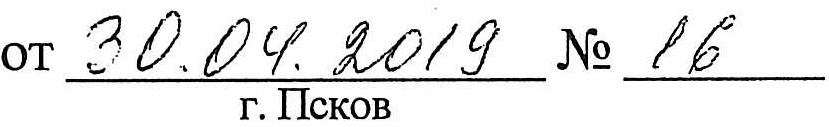 от 30.04.2019 № 16
г. Псков